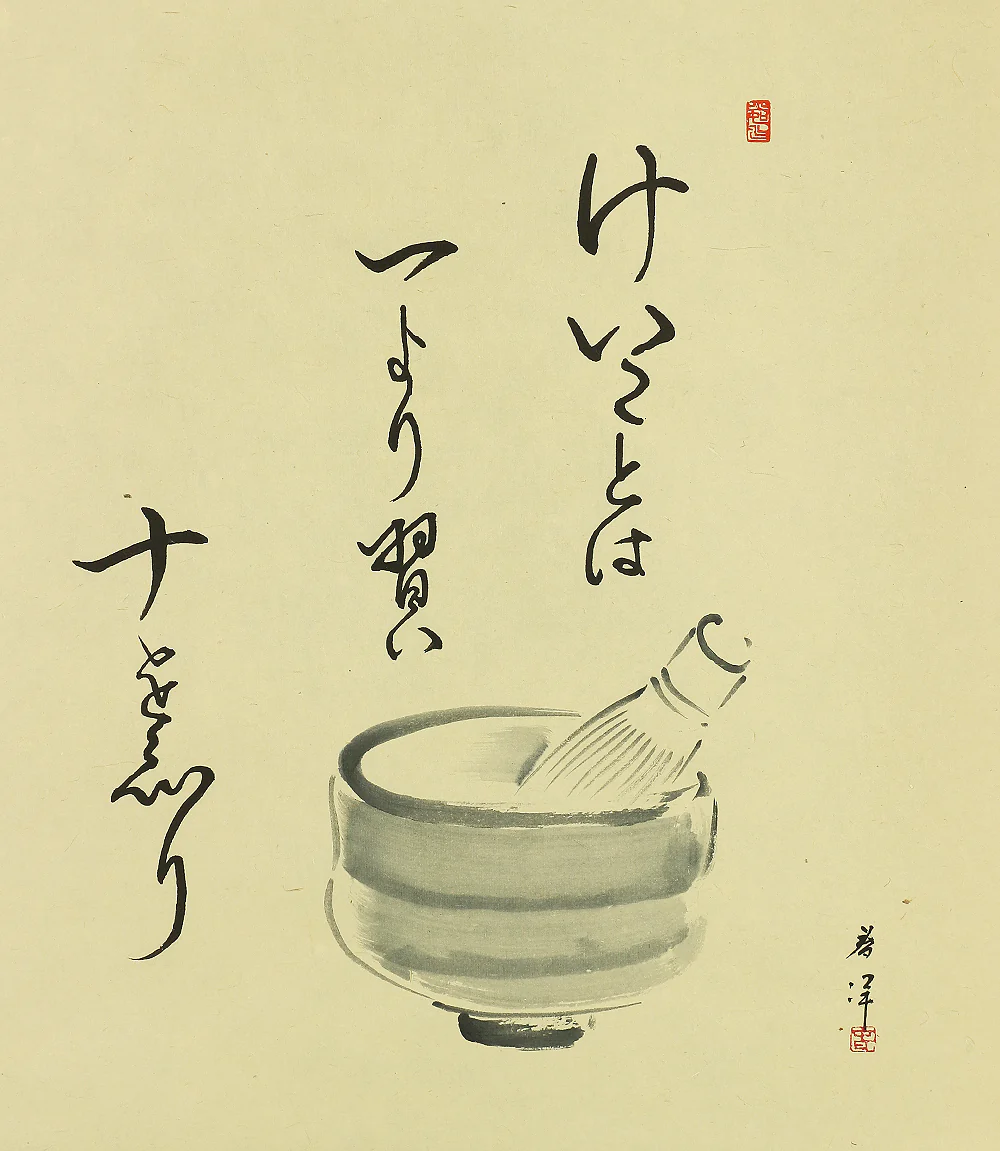 けいことは
一より習い
十を知り